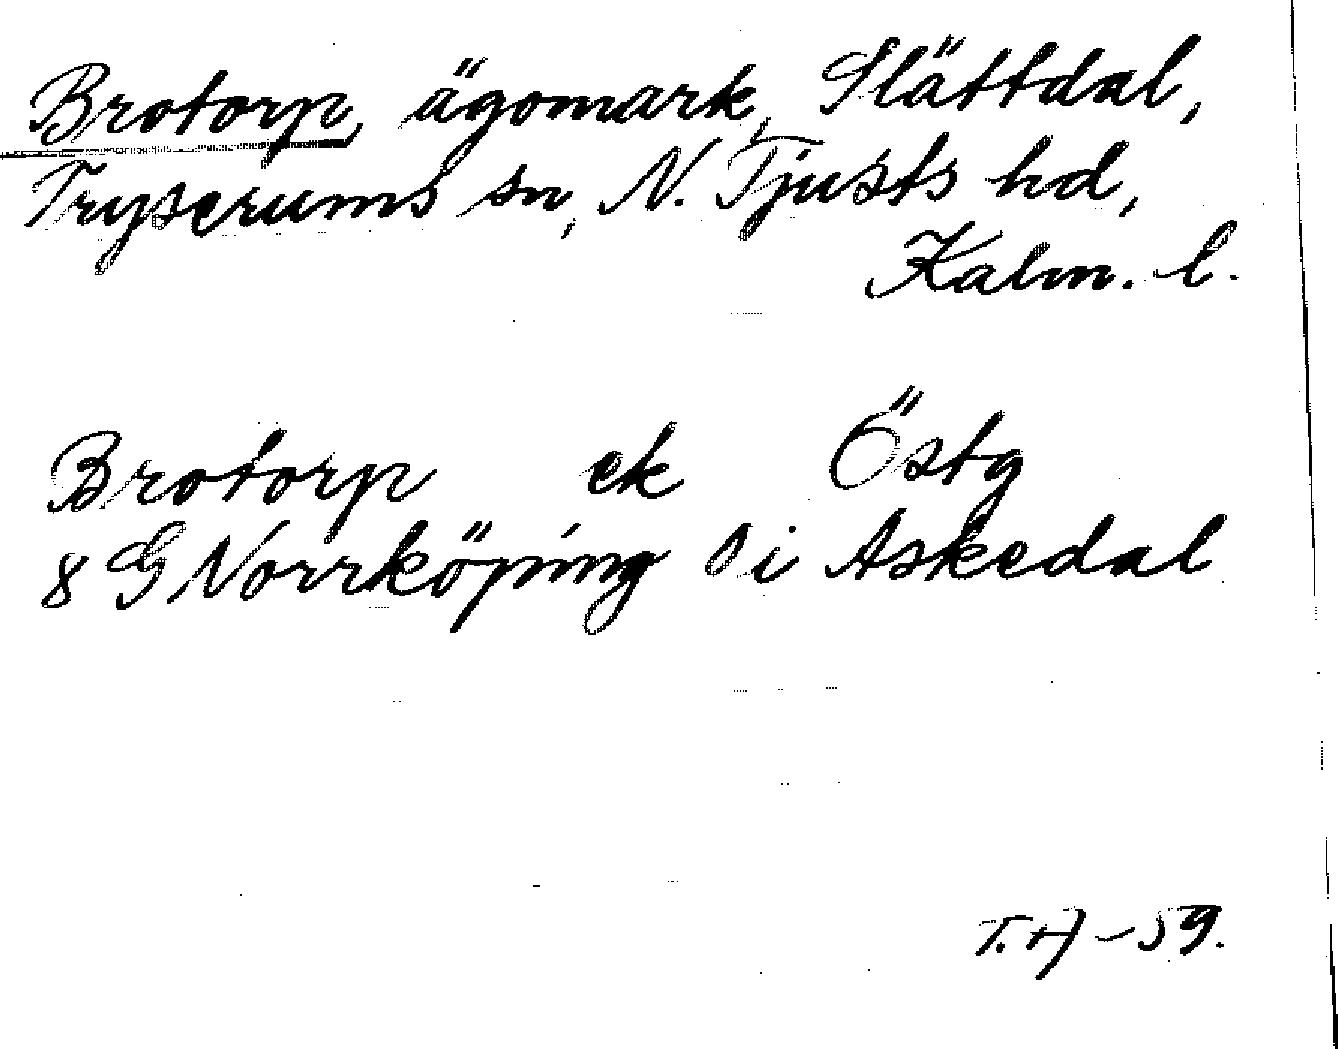 Brotorp, ägomark, Slättdal,
Tryserums sn, N. Tjusts hd,
Kalm. l.
Brotorp ek Östg
8 G Norrköping S i Askedal
T.A-59.